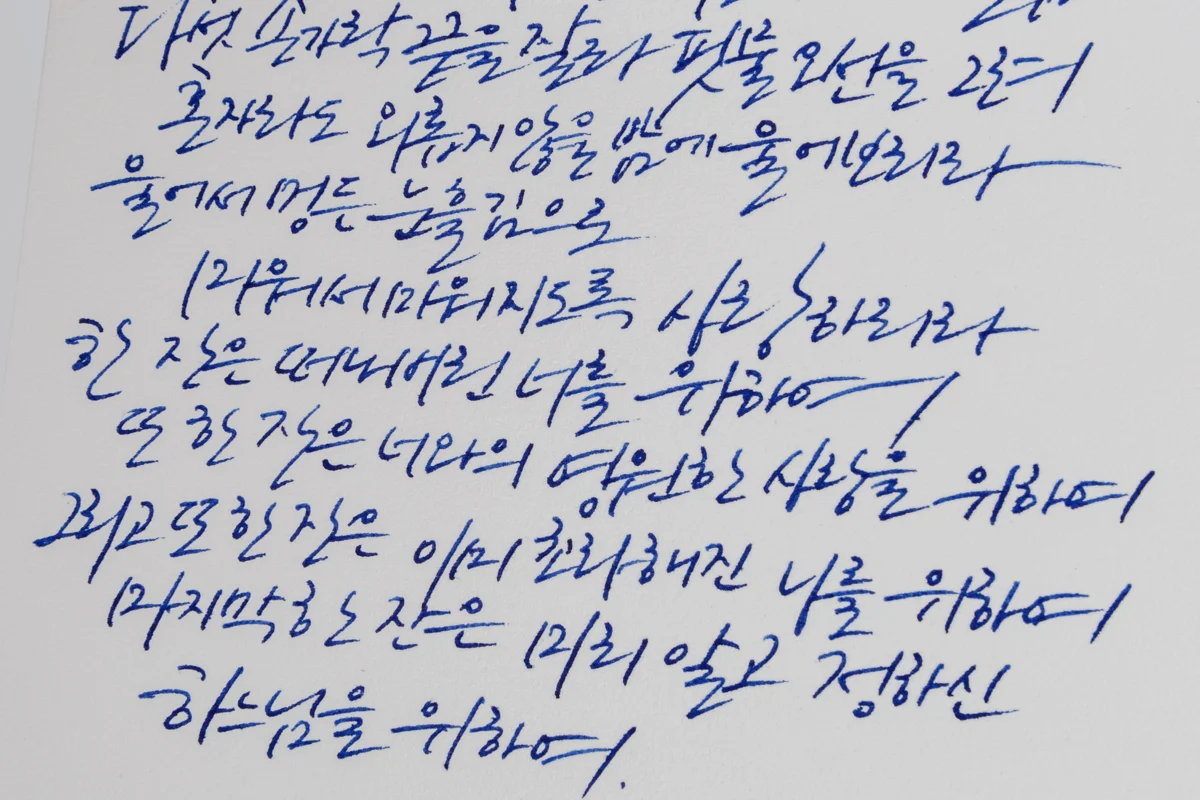 다섯 손가락 끝을 잘라 핏물 오선을 그려
혼자라도 외롭지 않을 밤에 울어보리라
울어서 멍든 눈흘김으로
미워서 미워지도록 사랑하리라
한 잔은 떠나버린 너를 위하여
또 한 잔은 너와의 영원한 사랑을 위하여
그리고 또 한 잔은 이미 초라해진 나를 위하여
마지막 한 잔은 미리 알고 정하신
하느님을 위하여.